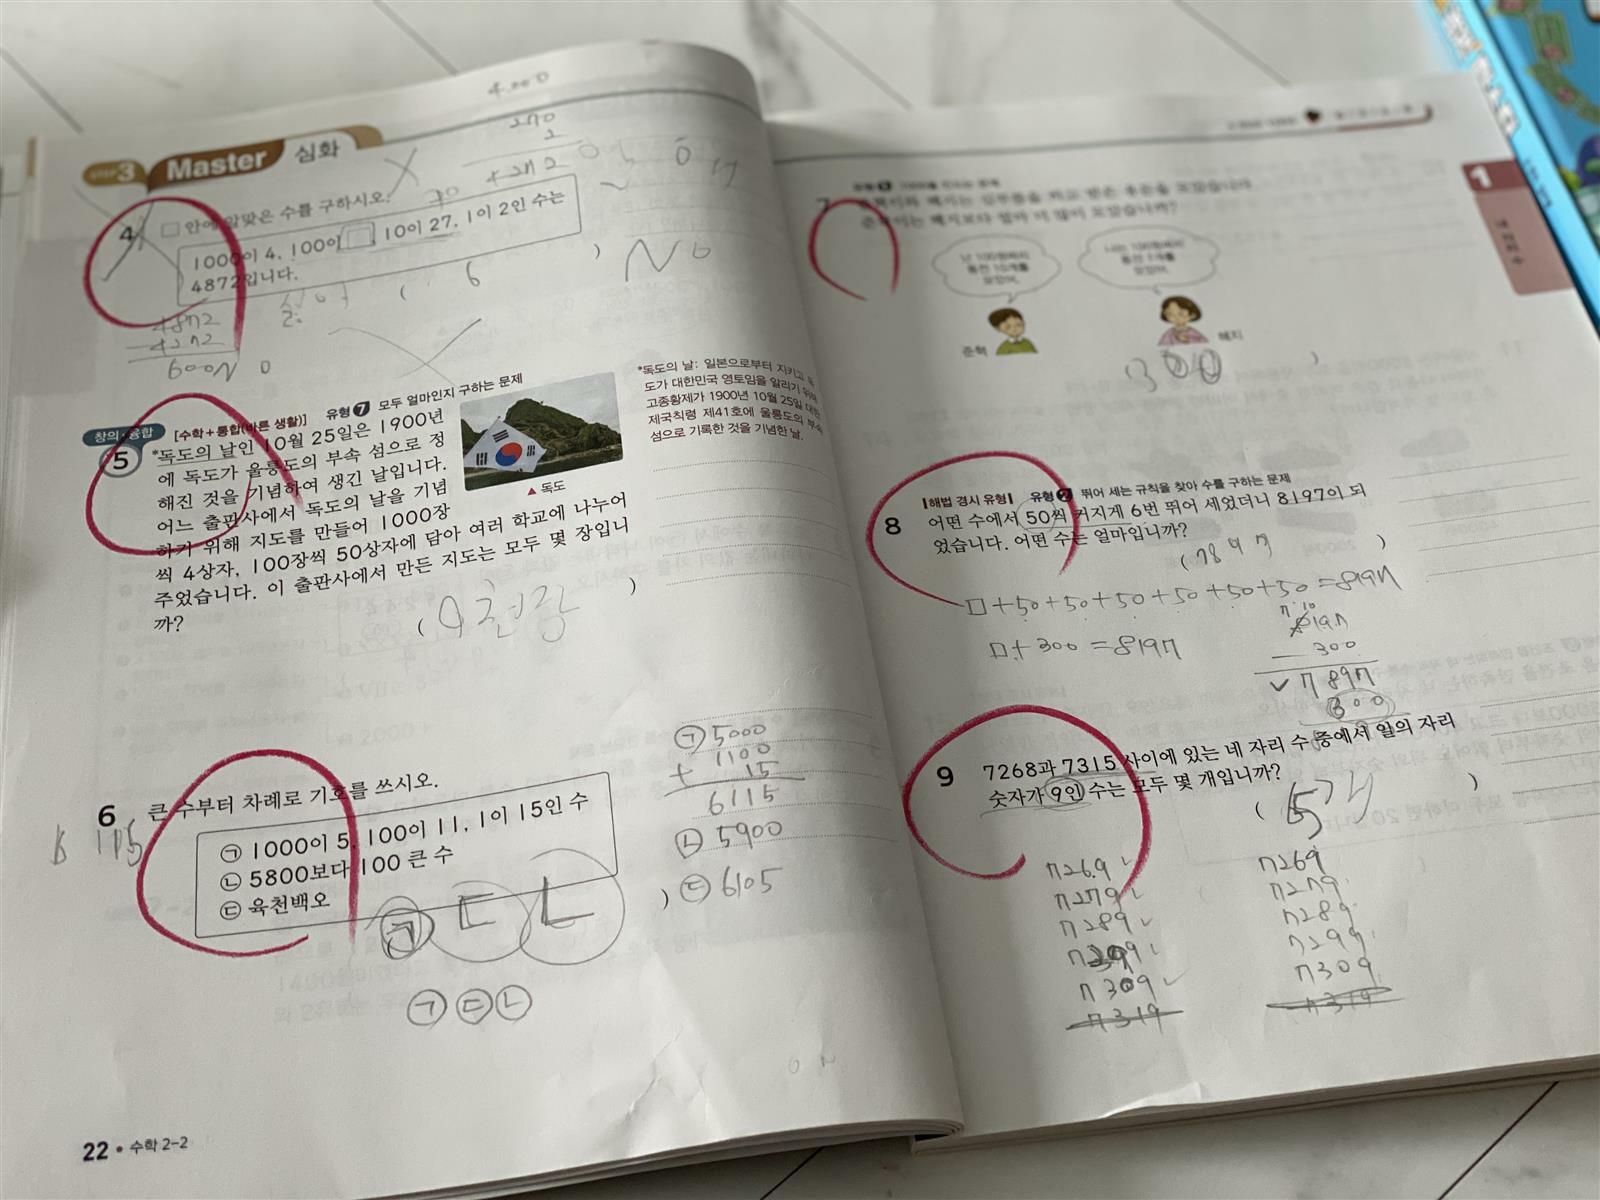 4.000
STEP 3 Master 심화
270
2
+272
4 □ 안에 알맞은 수를 구하시오.
1000이 4, 100이 □, 10이 27, 1이 2인 수는
4872입니다.
( 6 )
4872
- 4272
600
창의·융합 [수학+통합(바른 생활)] 유형 7 모두 얼마인지 구하는 문제
5 *독도의 날인 10월 25일은 1900년
에 독도가 울릉도의 부속 섬으로 정
해진 것을 기념하여 생긴 날입니다.
어느 출판사에서 독도의 날을 기념
하기 위해 지도를 만들어 1000장
씩 4상자, 100장씩 50상자에 담아 여러 학교에 나누어
주었습니다. 이 출판사에서 만든 지도는 모두 몇 장입니
까?
▲ 독도
*독도의 날: 일본으로부터 지키고 독
도가 대한민국 영토임을 알리기 위해
고종황제가 1900년 10월 25일 대한
제국칙령 제41호에 울릉도의 부속
섬으로 기록한 것을 기념한 날.
( 9천장 )
6 큰 수부터 차례로 기호를 쓰시오.
6115
㉠ 1000이 5, 100이 11, 1이 15인 수
㉡ 5800보다 100 큰 수
㉢ 육천백오
㉠ ㉢ ㉡ )
㉠ ㉢ ㉡
㉠ 5000
1100
+ 15
6115
㉡ 5900
㉢ 6105
22 • 수학 2-2
1
네 자리 수
7
난 100원짜리
동전 10개를
모았어.
나는 100원짜리
동전 7개를
모았어.
준혁
혜지
300 )
|해법 경시 유형| 유형 2 뛰어 세는 규칙을 찾아 수를 구하는 문제
8 어떤 수에서 50씩 커지게 6번 뛰어 세었더니 8197이 되
었습니다. 어떤 수는 얼마입니까?
( 7897 )
□+50+50+50+50+50+50=8197
□+300=8197
7 10
8197
- 300
✓ 7897
300
9 7268과 7315 사이에 있는 네 자리 수 중에서 일의 자리
숫자가 9인 수는 모두 몇 개입니까?
( 5개 )
7269 ✓
7279 ✓
7289 ✓
7299 ✓
7309 ✓
7319
7269
7279
7289
7299
7309
7319